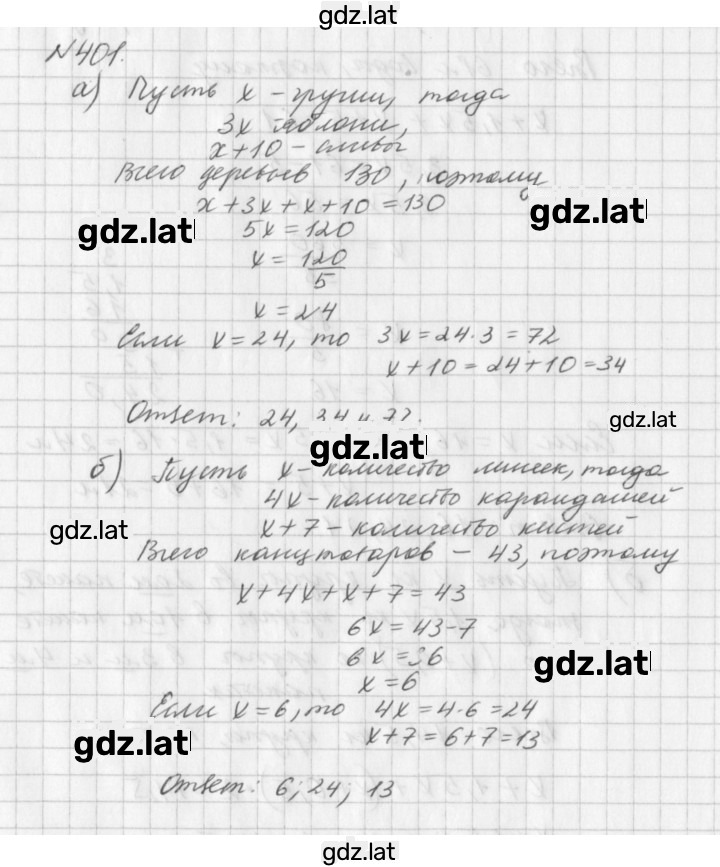 gdz.lat
№401.
а) Пусть x - груши, тогда
3x яблони,
x+10 - сливы
Всего деревьев 130, поэтому
x+3x+x+10=130
gdz.lat
gdz.lat
5x=120
x=120/5
x=24
Если x=24, то 3x=24·3=72
x+10=24+10=34
Ответ: 24, 34 и 72.
gdz.lat
gdz.lat
б) Пусть x - количество линеек, тогда
4x - количество карандашей
gdz.lat
x+7 - количество кистей
Всего канцтоваров - 43, поэтому
x+4x+x+7=43
6x=43-7
6x=36
gdz.lat
x=6
Если x=6, то 4x=4·6=24
gdz.lat
x+7=6+7=13
Ответ: 6; 24; 13
gdz.lat